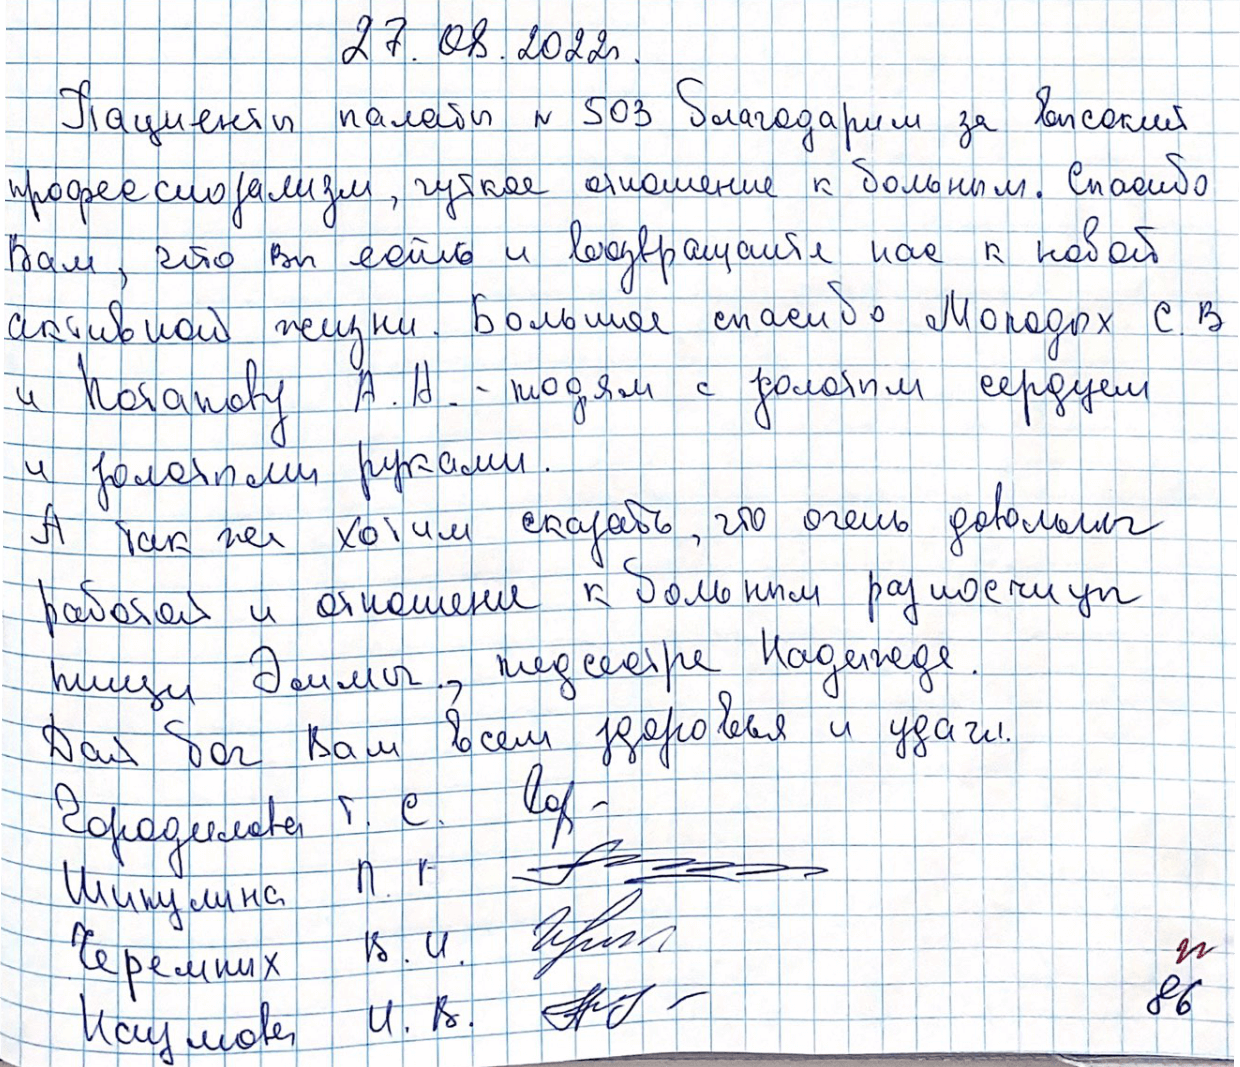 27.08.2022г.
Пациенты палаты № 503 благодарим за высокий
профессионализм, чуткое отношение к больным. Спасибо
Вам, что Вы есть и возвращаете нас к новой
активной жизни. Большое спасибо Молодых С.В
и Потапову А.А. - людям с золотым сердцем
и золотыми руками.
А так же хотим сказать, что очень довольны
работой и отношение к больным разносчицы
пищи Эммы, медсестре Надежде.
Дай бог Вам всем здоровья и удачи.
Городилова Т. С.
Шикулина П. Г
Черемных В. И.
Наумова И. В.
86